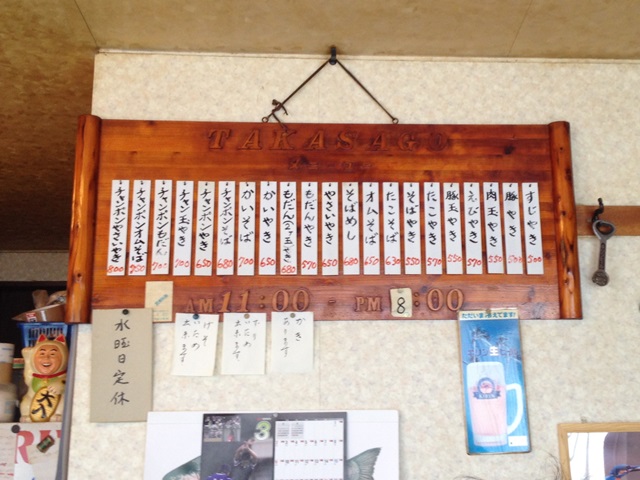 TAKASAGO
すじやき 500
豚やき 500
肉玉やき 550
えびやき 570
豚玉やき 550
たこやき 550
そばやき 550
たこそば 630
オムそば 650
そばめし 680
やさいやき 650
もだんやき 570
もだん(2ヶ玉やき) 680
かいやき 650
かいそば 700
チャンポンそば 680
チャンポンやき 650
チャン玉やき 700
チャンポンもだん
チャンポンオムそば
チャンポンやさいやき 800
AM 11:00 - PM 8:00
水曜日定休
げそ
いため
出来ます
いため
出来ます
かき
あります
ただいま、冷えてます
生
3